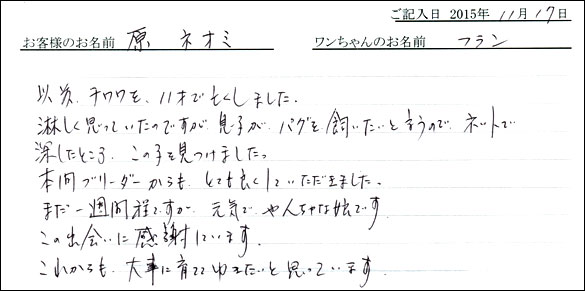 ご記入日 2015年 11月 17日
お客様のお名前 原 ネオミ ワンちゃんのお名前 フラン
以前、チワワを、11才で亡くしました。
淋しく思っていたのですが、息子が、パグを飼いたいと言うので、ネットで
探したところ、この子を見つけました。
本間ブリーダーからも、とても良くしていただきました。
まだ一週間程ですが、元気で、やんちゃな娘です。
この出会いに感謝しています。
これからも、大事に育ててゆきたいと思っています。